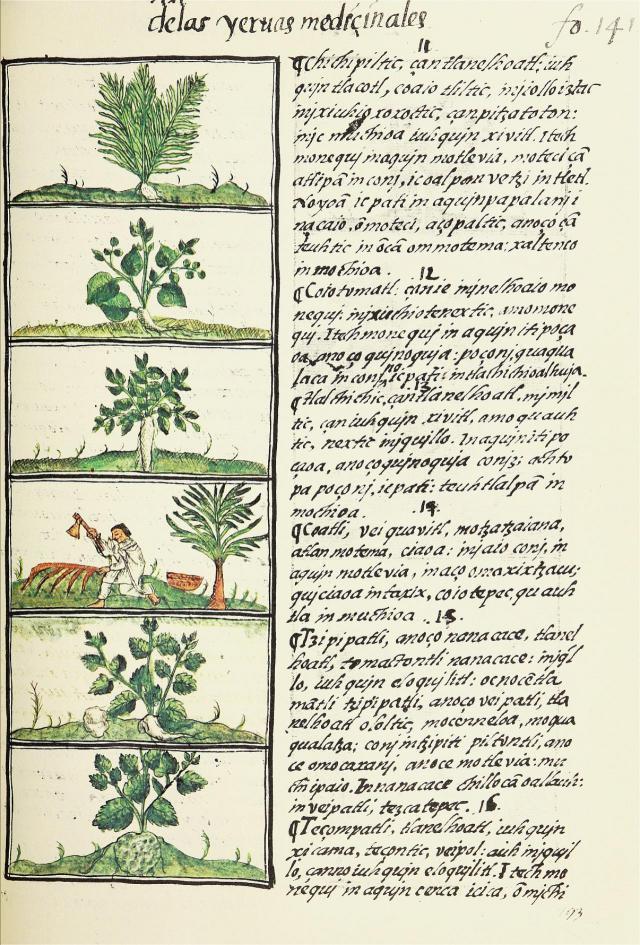 delas yervas medicinales
fo. 141
11
¶Chichipiltic, çan tlanelhoatl: iuh
quin tlacotl, coaio tliltic, injiollo iztac
injxiuhio xoxoctic, çan pitzatoton:
njc muchioa iuhqujn xivitl. Itech
monequj inaqujn motlevia, moteci çã
atl ipã in conj, ic oalpanvetzi in tletl.
No yoã ic pati in aqujn papalanj i
nacaio, õmoteci, aço paltic, anoço çã
teuhtic in õcã ommotema: xaltenco
in mochioa.
12
¶Coiotomatl: çan ie inelhoaio mo
nequj: injxiuhio tenextic, amo mone
quj. Itech monequj in aqujn itipoça
oa, anoço qujnoquja: poçonj, quaqua
laca in conj, ic pati: in tlachichioalhuja.
13
¶Tlalchichic, çan tlanelhoatl, mjmjl
tic, çan iuhqujn xivitl, amo quauh
tic, nextic injqujllo. Inaqujn iti po
çaoa, anoço qujnoquja conj: achtv
pa poçonj, ic pati: teuhtlalpã in
mochioa.
14
¶Coatli, vei quavitl, motzatzaiana,
atlan motema, ciaoa: injaio conj, in
aqujn motlevia, in aço omaxixtzacu;
qujciaoa intaxix, coiotepec, quauh
tla in muchioa.
15.
¶Tzipipatli, anoço nanacace, tlanel
hoatl, tomactontli nanacace: injqjl
lo, iuhqujn eloqujlitl: oc no cẽtla
mãtli tzipipatli, anoço vei patli, tla
nelhoatl ololtic, mocenneloa, moqua
qualatza; conj in tzipiti piltontli, ano
ce omocaxanj, anoce motlevia: mu
chipaio. In nanacace chillo cã oallauh:
in vei patli, tezcatepec.
16.
¶Tecompatli, tlanelhoatl, iuhqujn
xicama, tecontic, veipol: auh injqujl
lo, çan no iuhqujn eloqujlitl. Itech mo
nequj in aqujn cenca icica, õmichi
193